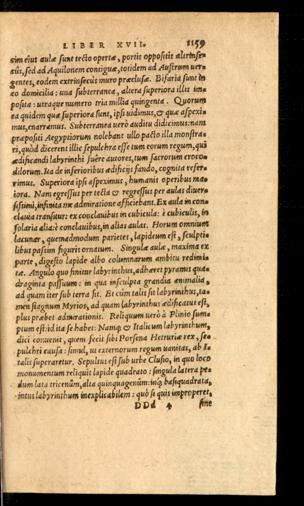 LIBER XVII. 1159
sim eius aulæ sunt tecto opertæ, portis oppositis altrinse
cus, sed ad Aquilonem contiguæ, totidem ad Austrum uer
gentes, eodem extrinsecus muro præclusæ. Bifaria sunt in
eo domicilia: una subterranea, altera superiora illis im
posita: utraque numero tria millia quingenta. Quorum
ea quidem quæ superiora sunt, ipsi uidimus, & quæ aspexi
mus, enarramus. Subterranea uerò auditu didicimus: nam
præpositi Aegyptiorum nolebant ullo pacto illa monstra
ri, quòd dicerent illic sepulchra esse tum eorum regum, qui
ædificandi labyrinthi fuêre autores, tum sacrorum croco
dilorum. Ita de inferioribus ædificijs fando, cognita refer
rimus. Superiora ipsi aspeximus, humanis operibus ma
iora. Nam egressus per tecta & regressus per aulas diuer
sissimi, infinita me admiratione afficiebant. Ex aula in con
clauia transitur: ex conclauibus in cubicula: è cubiculis, in
solaria alia: è conclauibus, in alias aulas. Horum omnium
lacunar, quemadmodum parietes, lapideum est, sculpti
libus passim figuris ornatum. Singulæ aulæ, maxima ex
parte, digesto lapide albo columnarum ambitu redimi
tæ. Angulo quo finitur labyrinthus, adhæret pyramis qua
draginta passuum: in qua insculpta grandia animalia,
ad quam iter sub terra fit. Et cùm talis sit labyrinthus, ta
men stagnum Myrios, ad quam labyrinthus ædificatus est,
plus præbet admirationis. Reliquum uerò à Plinio sum
ptum est: id ita se habet: Namq; & Italicum labyrinthum,
dici conuenit, quem fecit sibi Porsena Hetruriæ rex, se
pulchri causa: simul, ut externorum regum uanitas, ab I
talis superaretur. Sepultus est sub urbe Clusio, in quo loco
monumentum reliquit lapide quadrato: singula latera pe
dum lata tricenûm, alta quinquagenûm: inq; basi quadrata,
intus labyrinthum inexplicabilem: quò si quis improperet,
DDd 4 sine